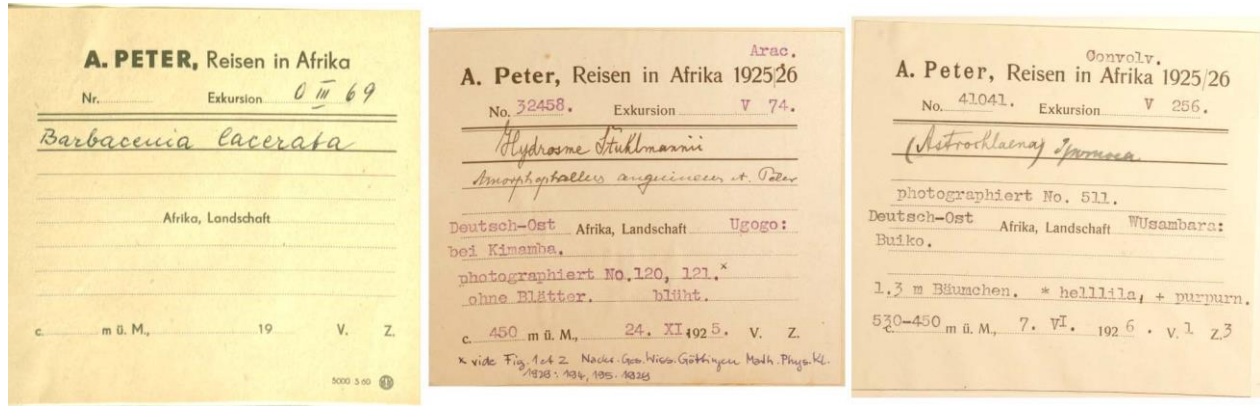 A. PETER, Reisen in Afrika
Nr. Exkursion O III 69
Barbacenia lacerata
Afrika, Landschaft
c. m ü. M., 19 V. Z.
5000 5 60
Arac.
A. Peter, Reisen in Afrika 1925/26
No. 32458. Exkursion V 74.
Hydrosme Stuhlmannii
Amorphophallus anguineus A. Peter
Deutsch-Ost Afrika, Landschaft Ugogo:
bei Kimamba.
photographiert No.120, 121.x
ohne Blätter. blüht.
c. 450 m ü. M., 24. XI.1925. V. Z.
x vide Fig. 1 et 2 Nachr. Ges. Wiss. Göttingen Math. Phys. Kl.
1928: 194, 195. 1929
Convolv.
A. Peter, Reisen in Afrika 1925/26
No. 41041. Exkursion V 256.
(Astrochlaena) Ipomoea
photographiert No. 511.
Deutsch-Ost Afrika, Landschaft WUsambara:
Buiko.
1,3 m Bäumchen. * helllila, + purpurn.
530-450 c. m ü. M., 7. VI. 1926. V. 1 Z. 3